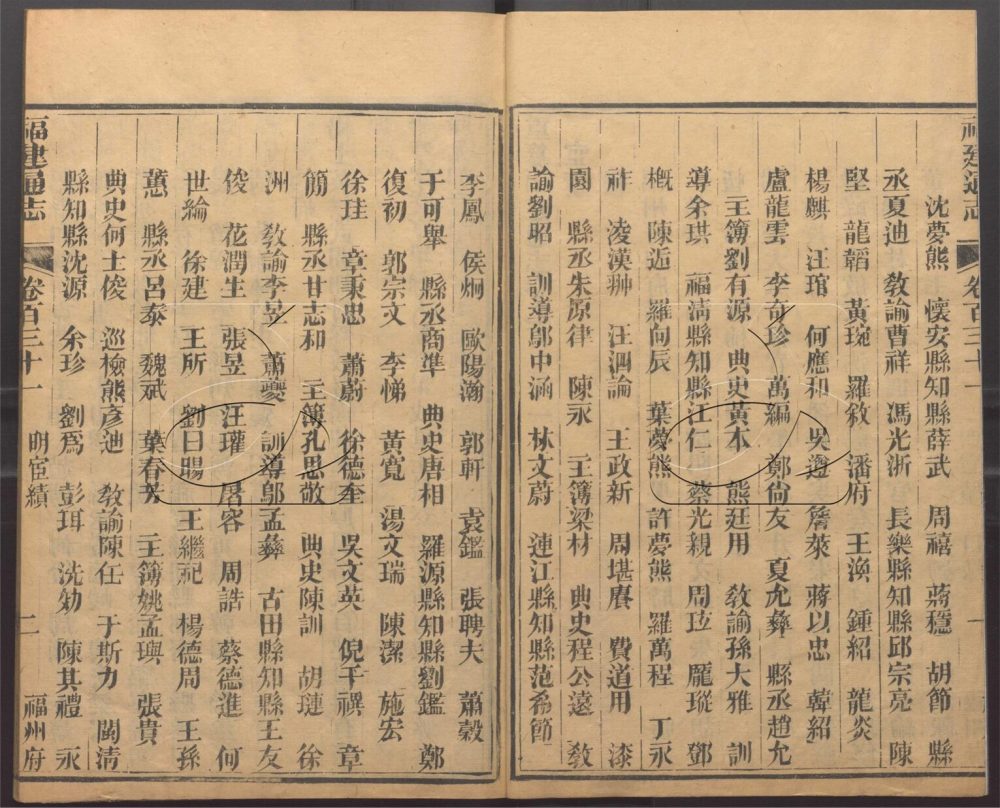 福建通志 卷百三十一
沈夢熊 懷安縣知縣薛武 周禧 蔣穩 胡節 縣
丞夏迪 教諭曹祥 馮光浙 長樂縣知縣邱宗亮 陳
堅 龍韜 黃琬 羅敘 潘府 王渙 鍾紹 龍炎
楊麒 汪琯 何應和 吳遵 詹萊 蔣以忠 韓紹
盧龍雲 李奇珍 萬編 鄭尙友 夏允彝 縣丞趙允
主簿劉有源 典史黃本 熊廷用 敎諭孫大雅 訓
導余珙 福淸縣知縣汪仁 蔡光親 周玹 龐瑽 鄧
槪 陳近 羅向辰 葉夢熊 許夢熊 羅萬程 丁永
祚 凌漢翀 汪泗論 王政新 周堪賡 費道用 漆
園 縣丞朱原律 陳永 主簿梁材 典史程公遠 敎
諭劉昭 訓導鄔中涵 林文蔚 連江縣知縣范希節
李鳳 侯炯 歐陽瀚 郭軒 袁鑑 張聘夫 蕭穀
于可舉 縣丞商準 典史唐相 羅源縣知縣劉鑑 鄭
復初 郭宗文 李悌 黃寬 湯文瑞 陳潔 施宏
徐珪 章秉忠 蕭蔚 徐德奎 吳文英 倪千禩 章
簡 縣丞甘志和 主簿孔思敬 典史陳訓 胡璉 徐
洲 敎諭李昱 蕭夔 訓導鄔孟彝 古田縣知縣王友
俊 花潤生 張昱 汪瓘 屠容 周誥 蔡德進 何
世綸 徐建 王所 劉日暘 王繼祀 楊德周 王孫
蕙 縣丞呂泰 魏斌 葉春芳 主簿姚孟璵 張貴
典史何士俊 巡檢熊彥迪 敎諭陳任 于斯力 閩淸
縣知縣沈源 余珍 劉爲 彭珥 洗勑 陳其禮 永
福建通志 卷百三十一 明宦績 二 福州府